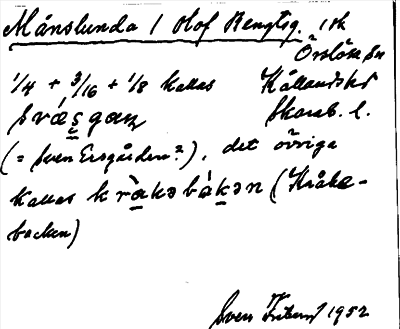 Månslunda 1 Olof Bengtsg. 1 sk
Örslösa sn
1/4 + 3/16 + 1/8 kallas Kållands hd
svásgan Skarab. l.
(= Sven Ersgården?), det övriga
kallas kràkəbákən (Kråke-
backen)
Sven 1952